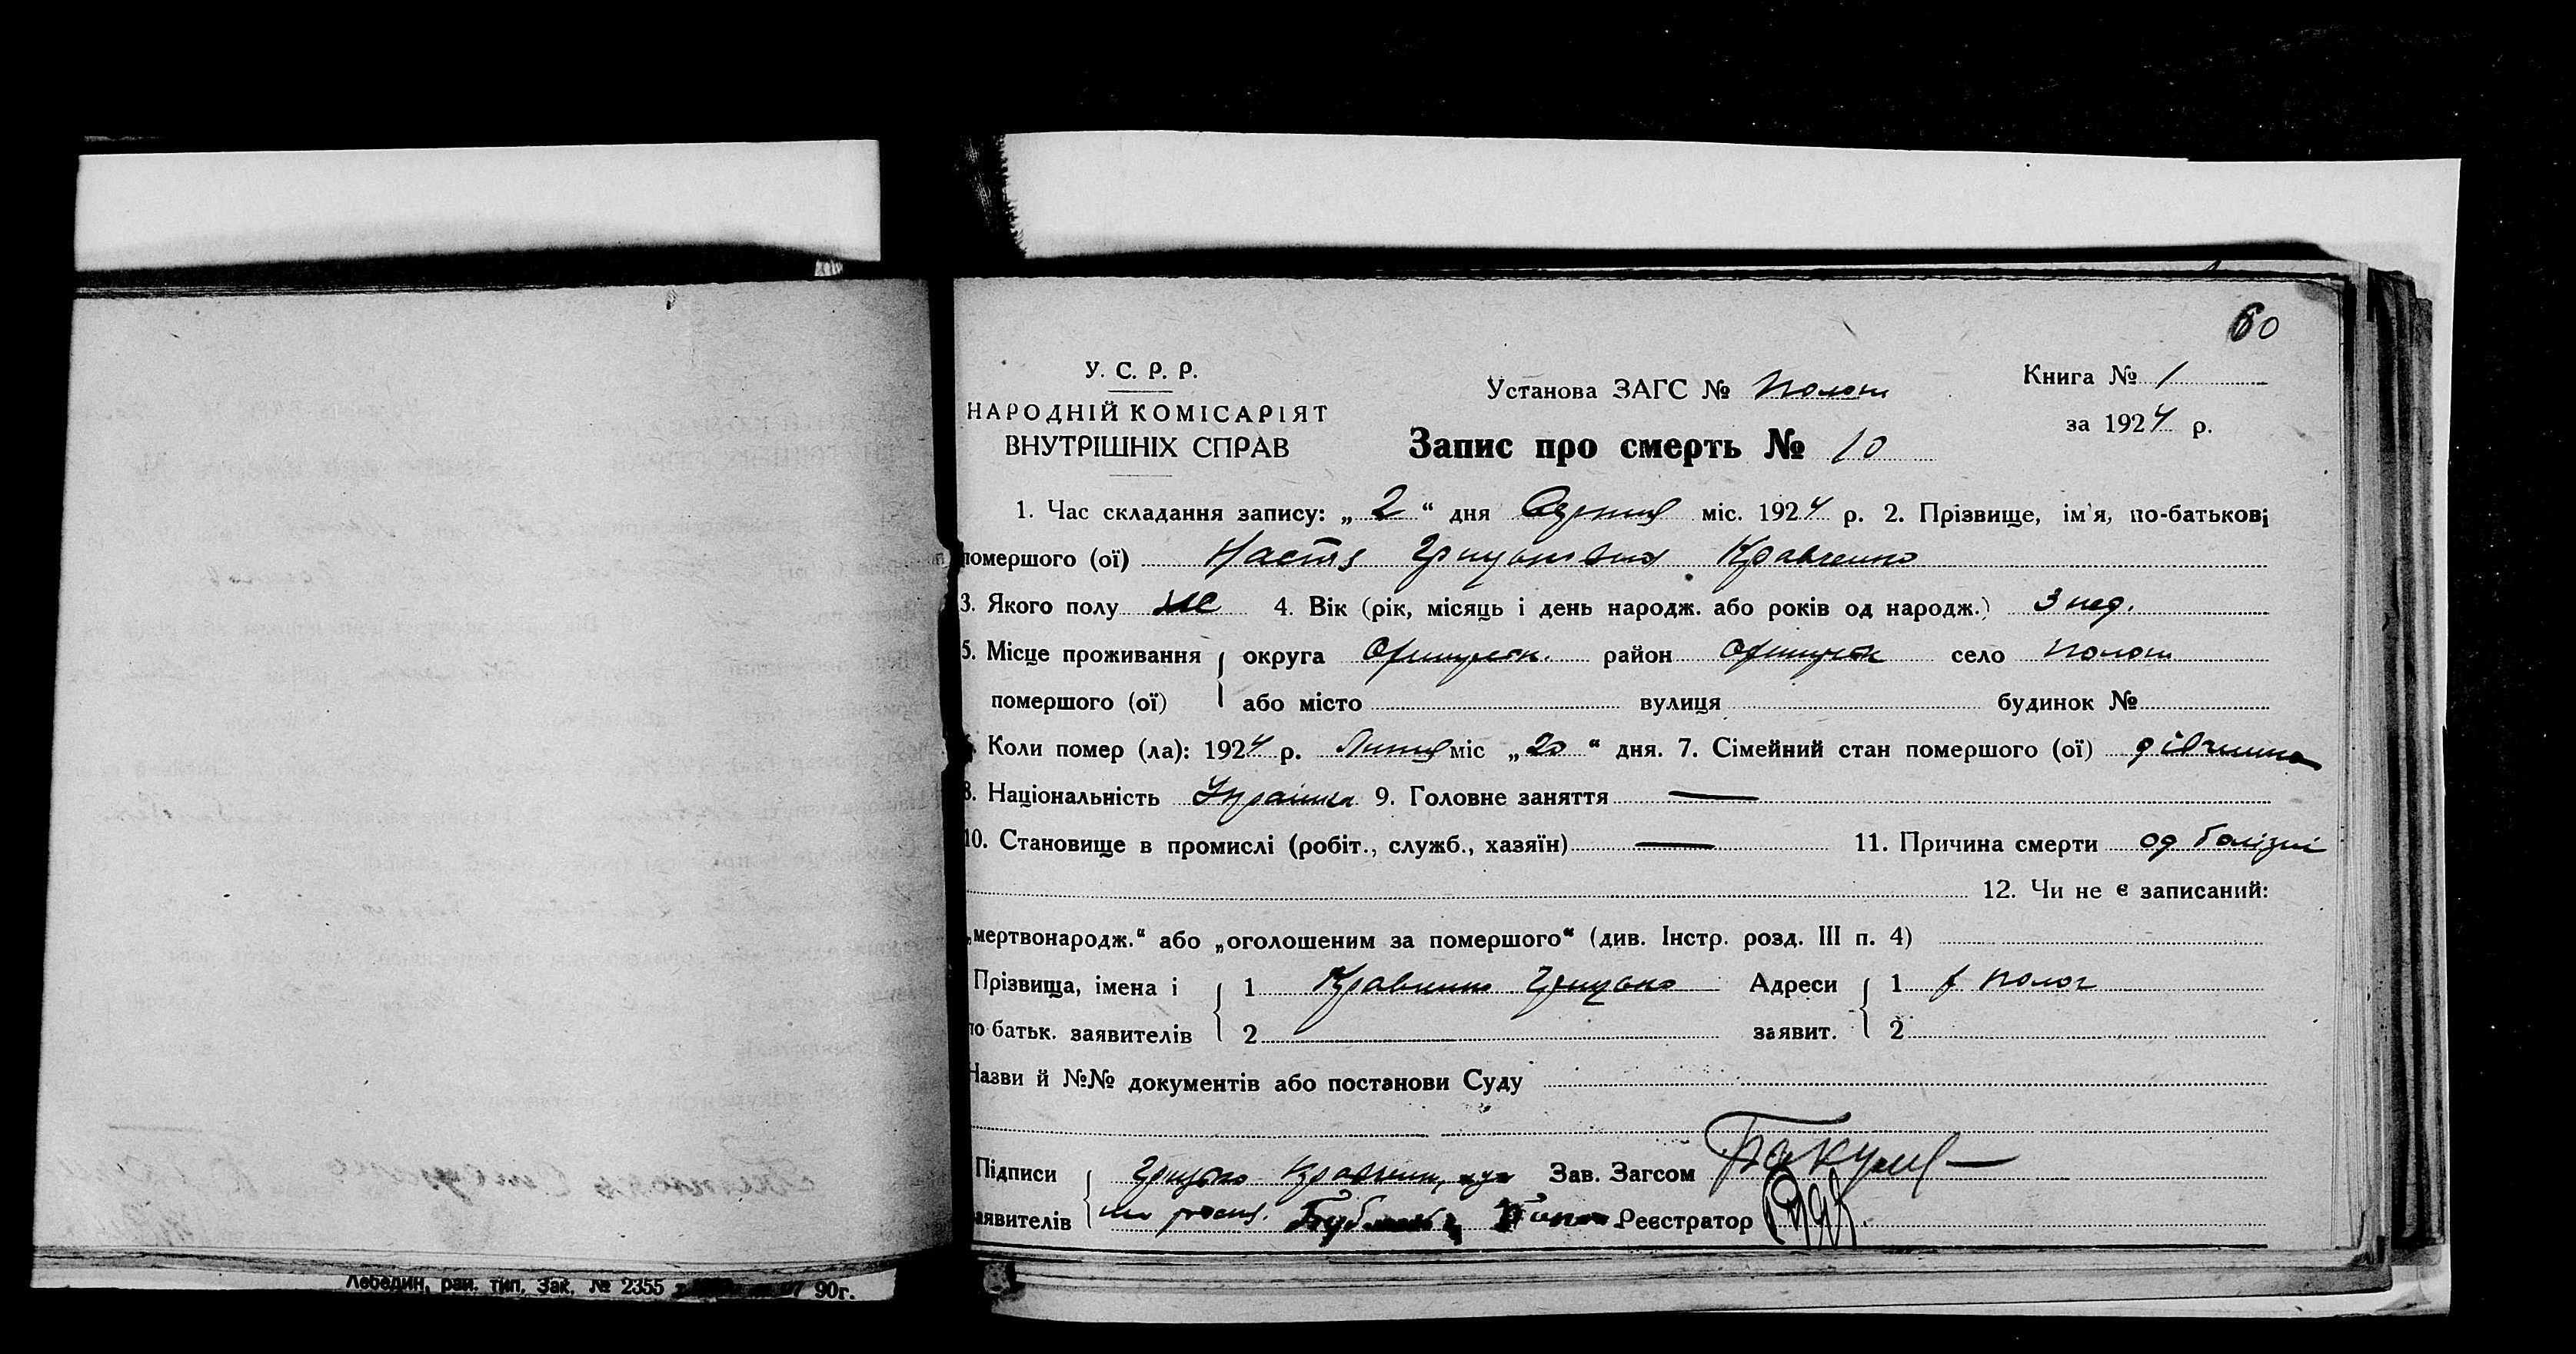 60
У. С. Р. Р.
НАРОДНІЙ КОМІСАРІЯТ
ВНУТРІШНІХ СПРАВ
Установа ЗАГС №
Книга № 1
за 1924 р.
Запис про смерть № 10
1. Час складання запису: „ 2 “ дня міс. 1924 р. 2. Прізвище, ім'я, по-батькові
помершого (ої) Настя Грицьківна Кравченко
3. Якого полу жс 4. Вік (рік, місяць і день народж. або років од народж.) 3 нед.
5. Місце проживання округа район село
помершого (ої) або місто вулиця будинок №
Коли помер (ла): 1924 р. Липця міс „ 20 “ дня. 7. Сімейний стан помершого (ої) дівчина
8. Національність Українка 9. Головне заняття —
10. Становище в промислі (робіт., служб., хазяїн) — 11. Причина смерти од болізні
12. Чи не є записаний:
„мертвонародж.“ або „оголошеним за помершого“ (див. Інстр. розд. III п. 4)
Прізвища, імена і 1 Кравченко Грицько Адреси 1
по батьк. заявителів 2 заявит. 2
Назви й №№ документів або постанови Суду
Підписи Грицько Зав. Загсом
заявителів Реєстратор
Лебедин, рай. тип. Зак. № 2355 90г.